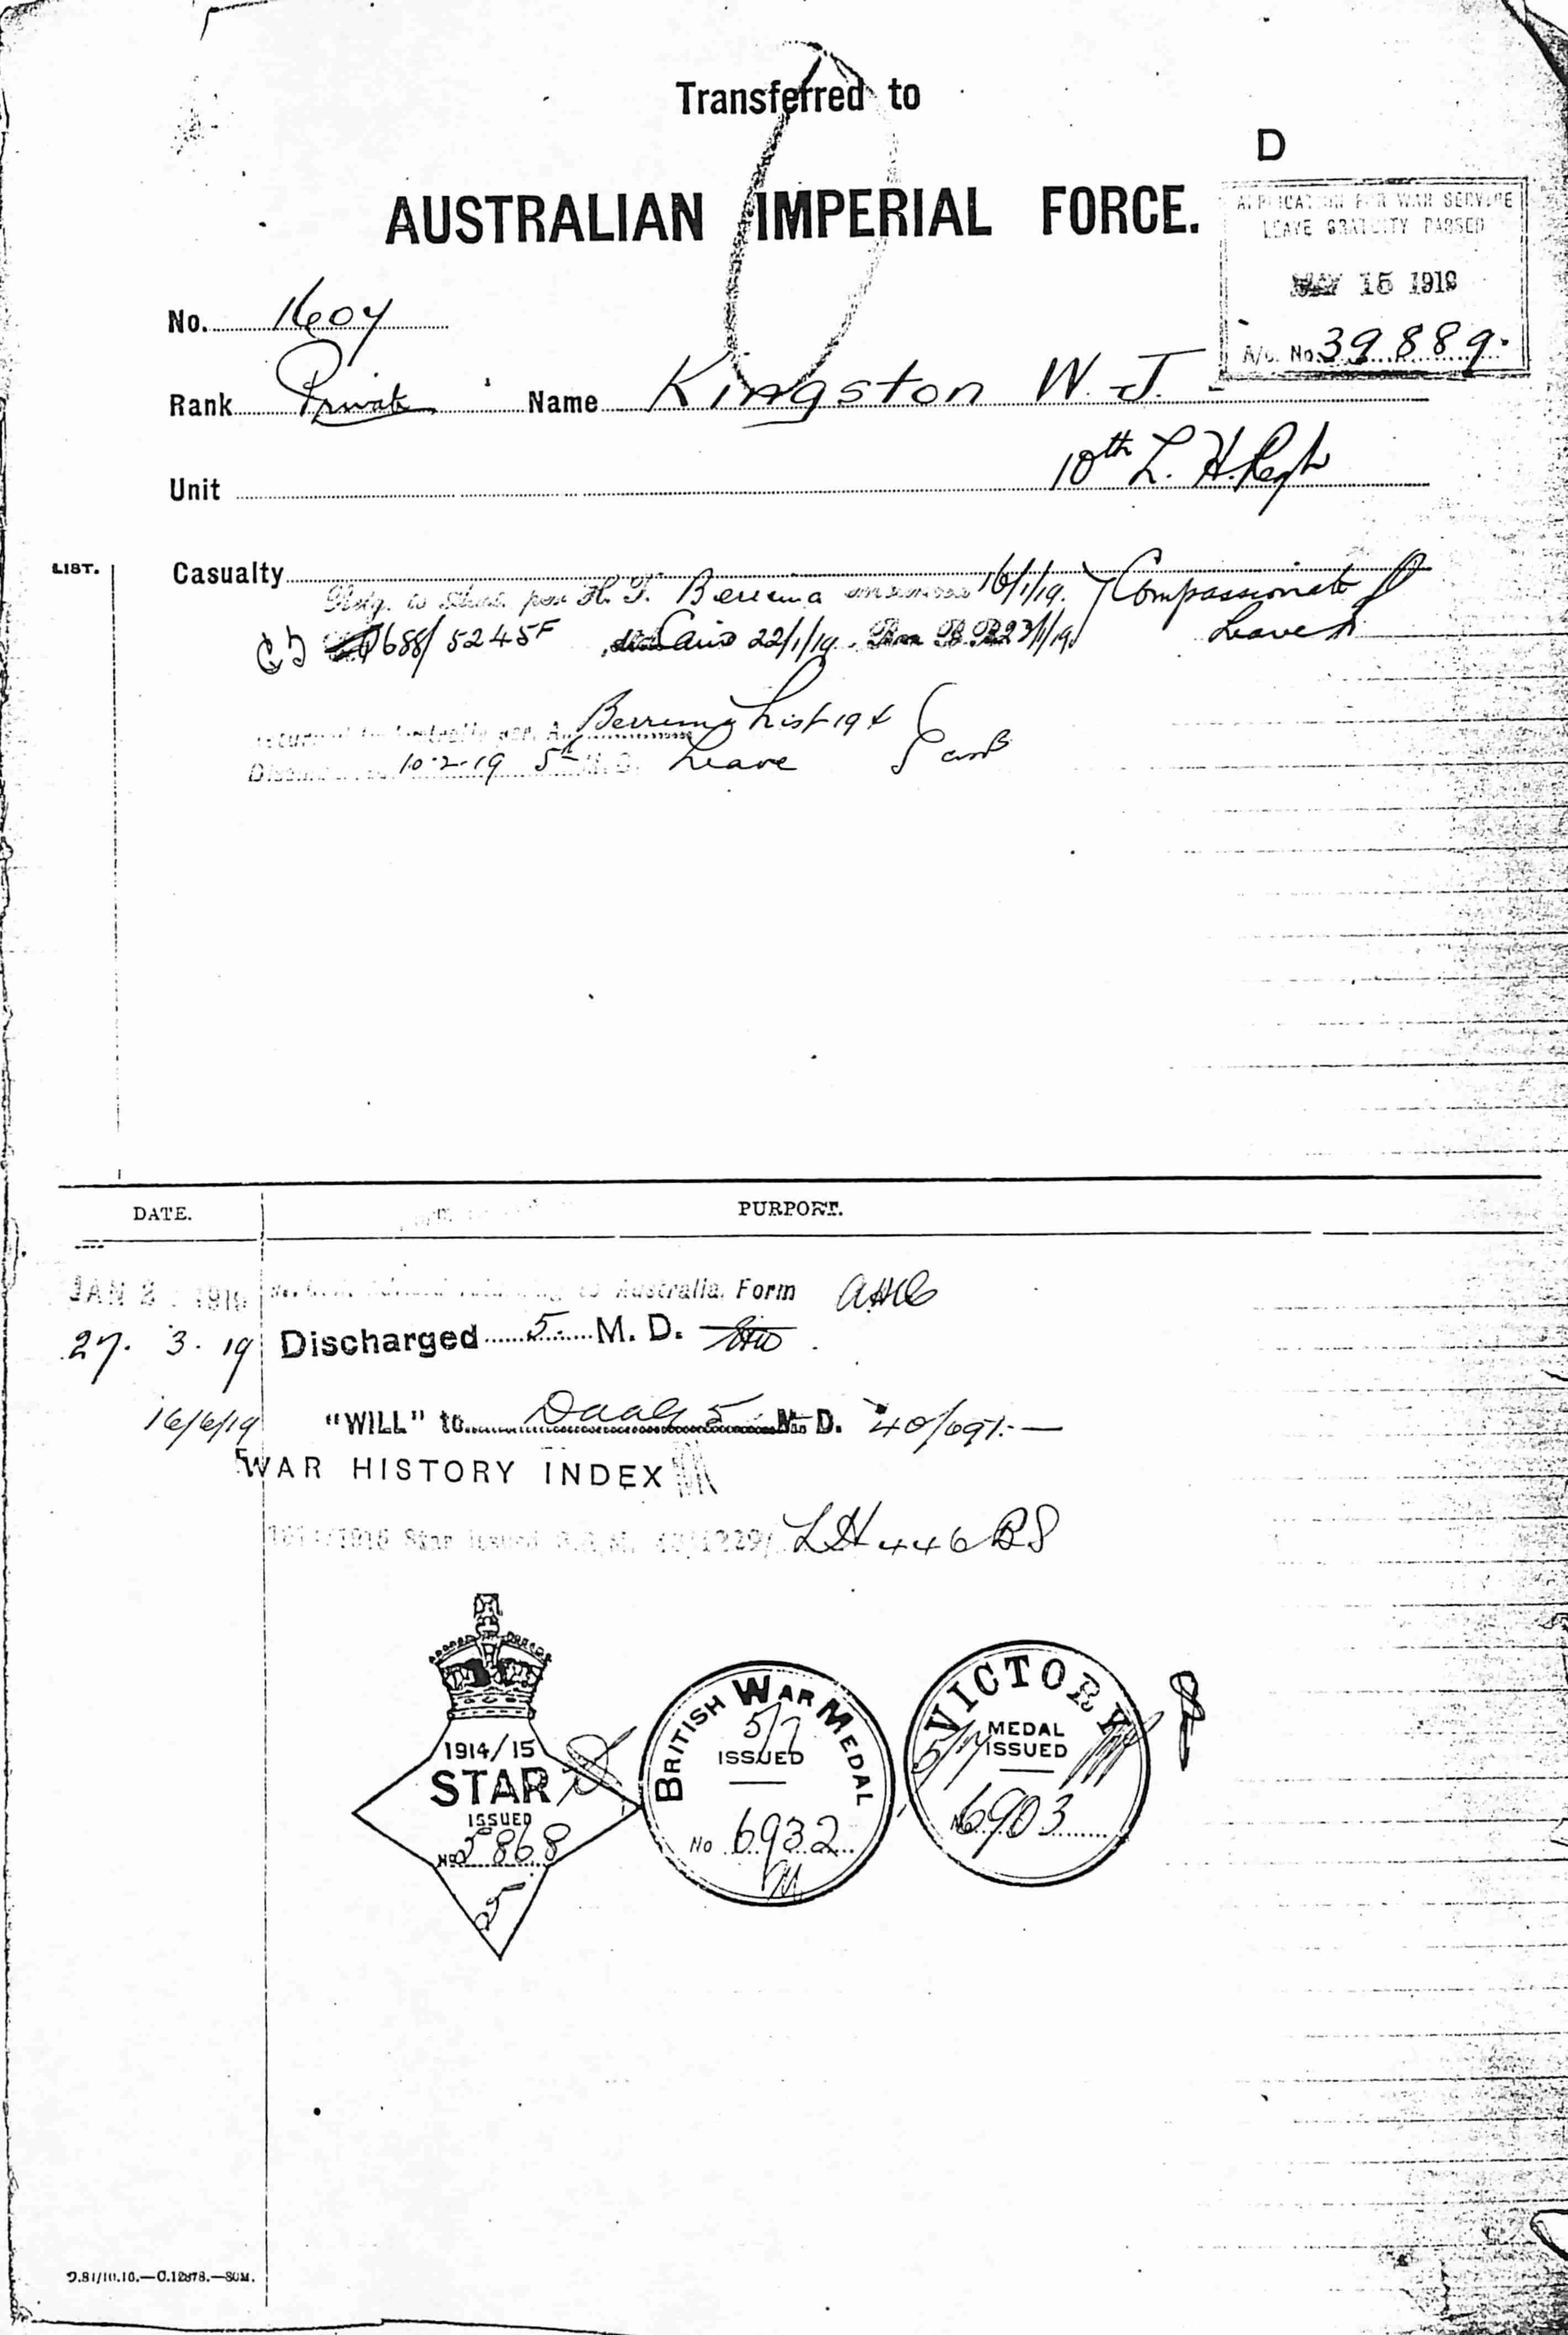 Transferred to
D
AUSTRALIAN IMPERIAL FORCE.
APPLICATION FOR WAR SERVICE
LEAVE GRATUITY PASSED
MAY 15 1919
A/c. No. 39889.
No. 1604
Rank Private Name Kingston W. J.
Unit 10th L. H. Regt
LIST.
Casualty
Retg. to Aust. per H. T. Berrima 16/1/19. Compassionate
688/5245F Cairo 22/1/19. 23/1/19 Leave
Returned to Australia per Berrima List 194
10.2.19 5th M. D. Leave
DATE. PURPORT.
JAN 1919 to Australia. Form
27. 3. 19 Discharged 5 M. D.
16/6/19 "WILL" to 5 M. D. 40/691
WAR HISTORY INDEX
1914/1915 Star issued LH 446
1914/15
STAR
ISSUED
No 5868
BRITISH WAR MEDAL
5/7
ISSUED
No 6932
VICTORY
MEDAL
5/7 ISSUED
No 6903
D.81/10.16.—C.12878.—50M.